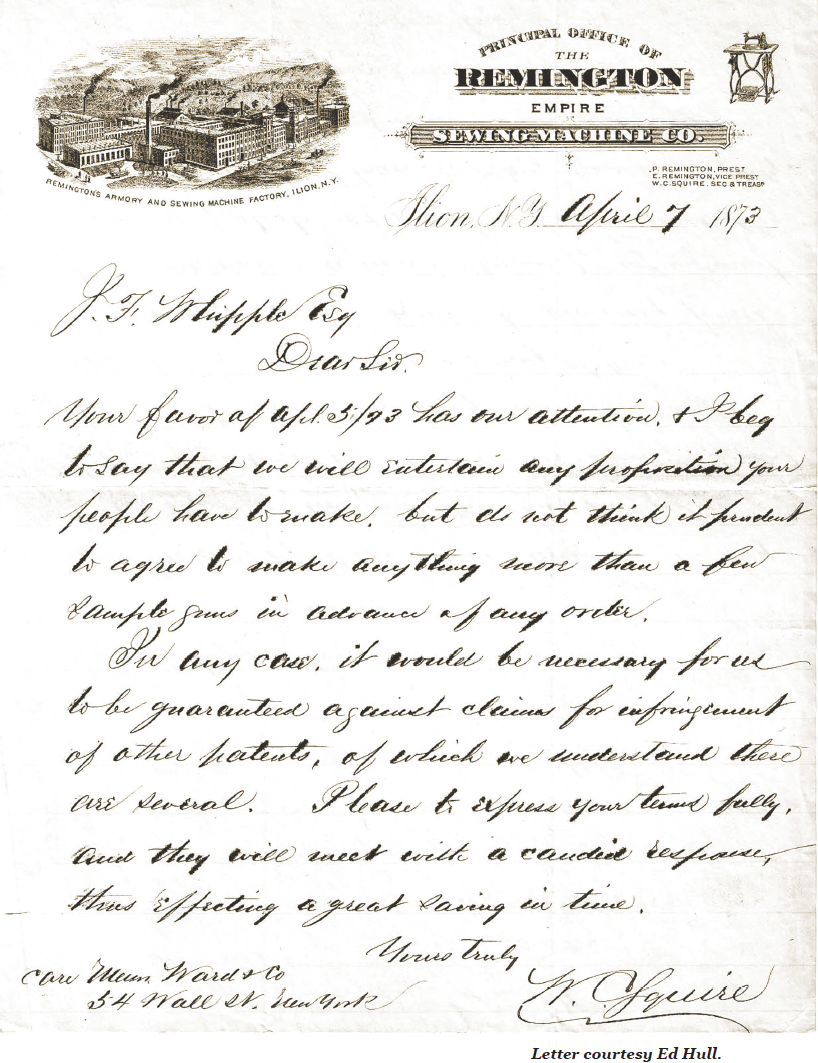 PRINCIPAL OFFICE OF
THE
REMINGTON
EMPIRE
SEWING-MACHINE CO.
P. REMINGTON, PREST
E. REMINGTON, VICE PREST
W. C. SQUIRE. SEC & TREASR
REMINGTON'S ARMORY AND SEWING MACHINE FACTORY, ILION, N.Y.
Ilion, N.Y. April 7 1873
J. F. Whipple Esq
Dear Sir.
Your favor of Apl. 5/73 has our attention. & I beg
to say that we will entertain any proposition your
people have to make, but do not think it prudent
to agree to make anything more than a few
sample guns in advance of any order.
In any case, it would be necessary for us
to be guaranteed against claims for infringement
of other patents, of which we understand there
are several. Please to express your terms fully,
and they will meet with a candid response,
thus effecting a great saving in time.
Yours truly
W. C. Squire
care Ward & Co
54 Wall St. New York
Letter courtesy Ed Hull.